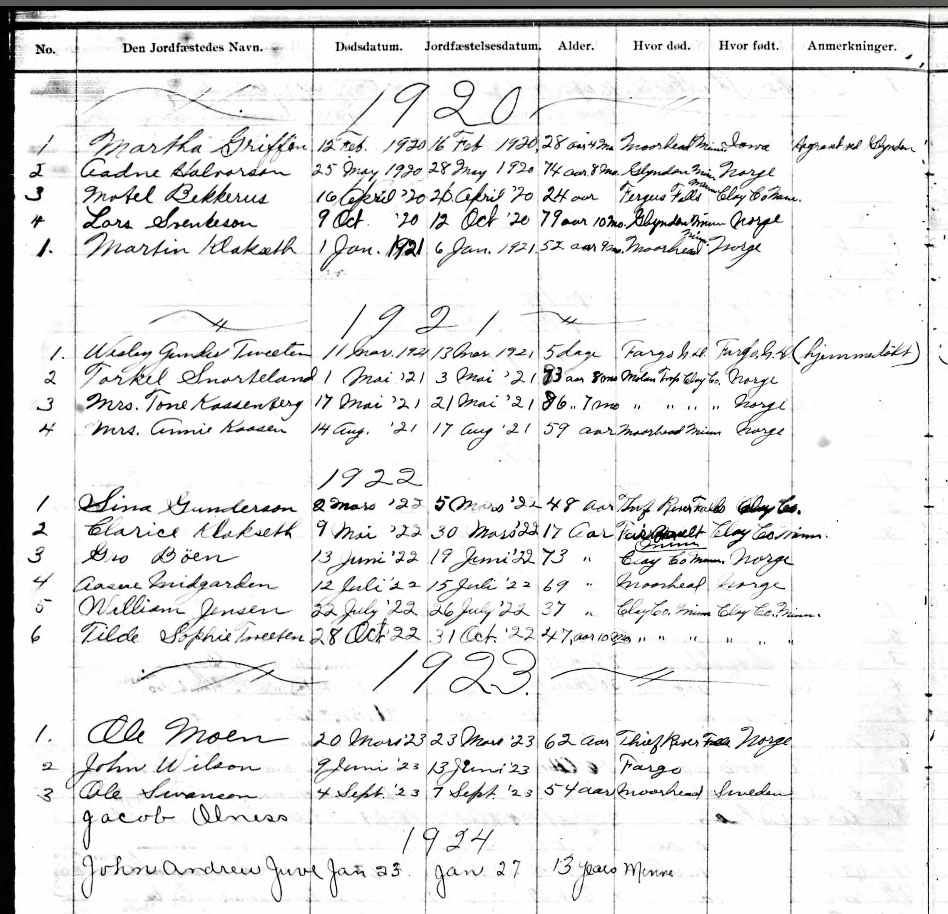 No. Den Jordfæstedes Navn. Dødsdatum. Jordfæstelsesdatum. Alder. Hvor død. Hvor født. Anmerkninger.
1920
1 Martha Griffin 12 Feb. 1920 16 Feb 1920 28 aar 4 mo Moorhead Minn Iowa ved Glyndon
2 Aadne Halvorson 25 May 1920 28 May 1920 74 aar 8 mo. Glyndon Min Norge
3 Bekkerus 16 April '20 20 April '20 24 aar Fergus Falls Minn Clay Co Minn.
4 Lars Svenkeson 9 Oct '20 12 Oct '20 79 aar 10 mo. Glyndon Minn Norge
1. Martin Klakseth 1 Jan. 1921 6 Jan. 1921. 52 aar 9 mo. Moorhead Minn Norge
1921
1. Wesley Gunder Tweeten 11 Mar. 1921 13 Mar. 1921 5 dage Fargo N. D. Fargo, N. D. (hjemmedøbt)
2 Torkel Snorteland 1 Mai '21 3 Mai '21 83 aar 8 mo Moland Twp Clay Co. Norge
3 Mrs. Tone Kassenborg 17 Mai '21 21 Mai '21 86 " 7 mo " " " " Norge
4 Mrs. Annie Kaasen 14 Aug. '21 17 Aug '21 59 aar Moorhead Minn Norge
1922
1 Sina Gunderson 2 Mars '22 5 Mars '22 48 aar Thf River Falls Clay Co.
2 Clarice Klakseth 9 Mai '22 30 Mars '22 17 Aar Minn Clay Co Minn.
3 Gro Böen 13 Juni '22 19 Juni '22 73 " Clay Co Minn. Norge
4 Aasne Midgarden 12 Juli '22 15 Juli '22 69 " Moorhead Norge
5 William Jensen 22 July '22 26 July '22 37 " Clay Co. Minn Clay Co. Minn.
6 Tilde Sophie Tweeten 28 Oct '22 31 Oct. '22 47 aar 10 mo " " " " " "
1923.
1. Ole Moen 20 Mars '23 23 Mars '23 62 aar Thief River Falls Norge
2 John Wilson 9 Juni '23 13 Juni '23 Fargo
3 Ole Swanson 4 Sept. '23 7 Sept. '23 54 aar Moorhead Sweden
Jacob Olness
1924
John Andrew Juve Jan 23 Jan 27 13 years Minn